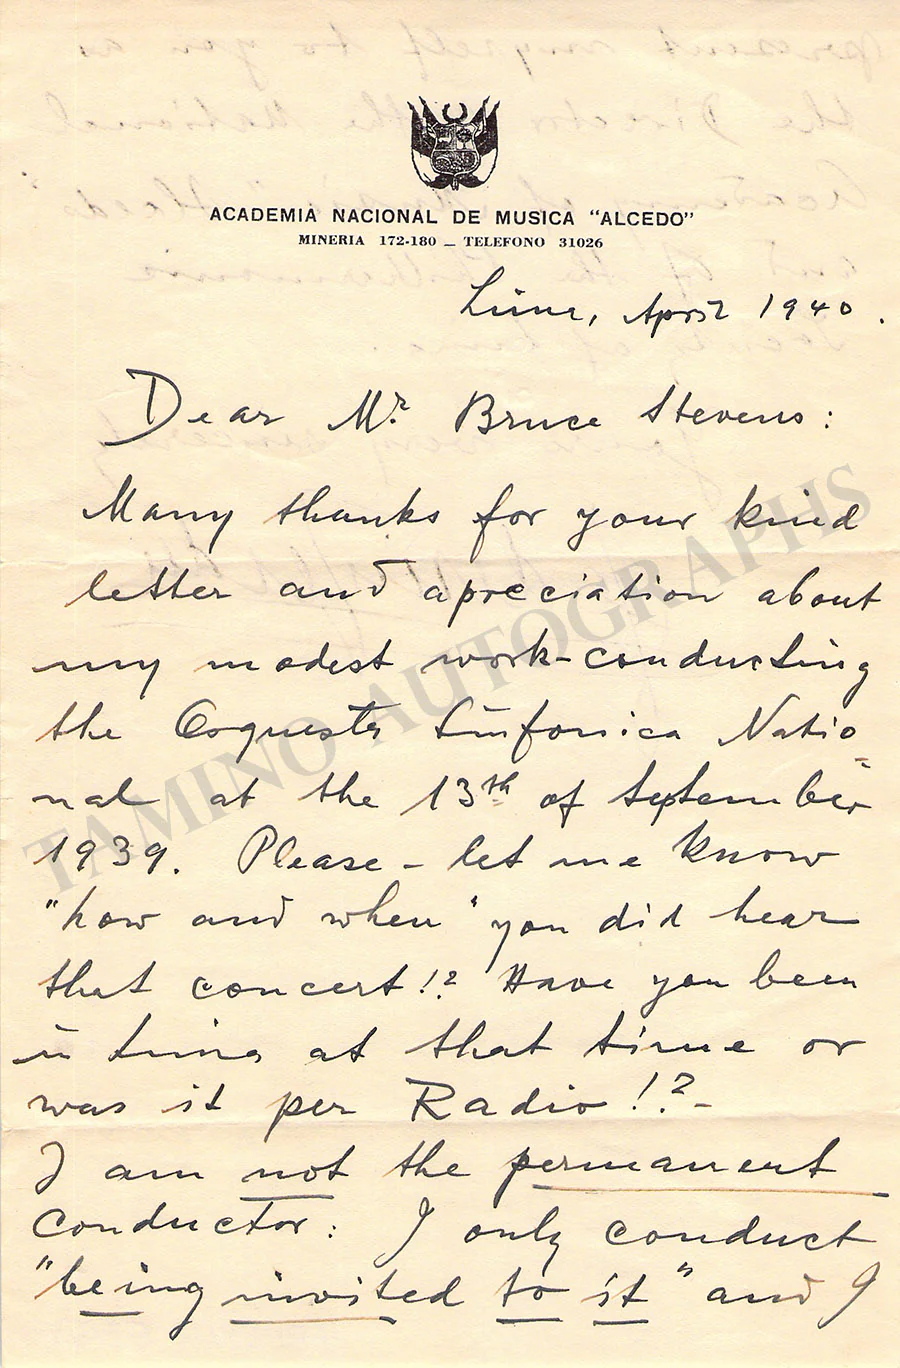 ACADEMIA NACIONAL DE MUSICA "ALCEDO"
MINERIA 172-180 — TELEFONO 31026
Lima, April 1940.
Dear Mr. Bruce Stevens:
Many thanks for your kind
letter and apreciation about
my modest work-conducting
the Orquesta Sinfonica Natio-
nal at the 13th of September
1939. Please - let me know
"how and when" you did hear
that concert!? Have you been
in Lima at that time or
was it per Radio!?-
I am not the permanent
conductor: I only conduct
"being invited to it" and I
TAMINO AUTOGRAPHS